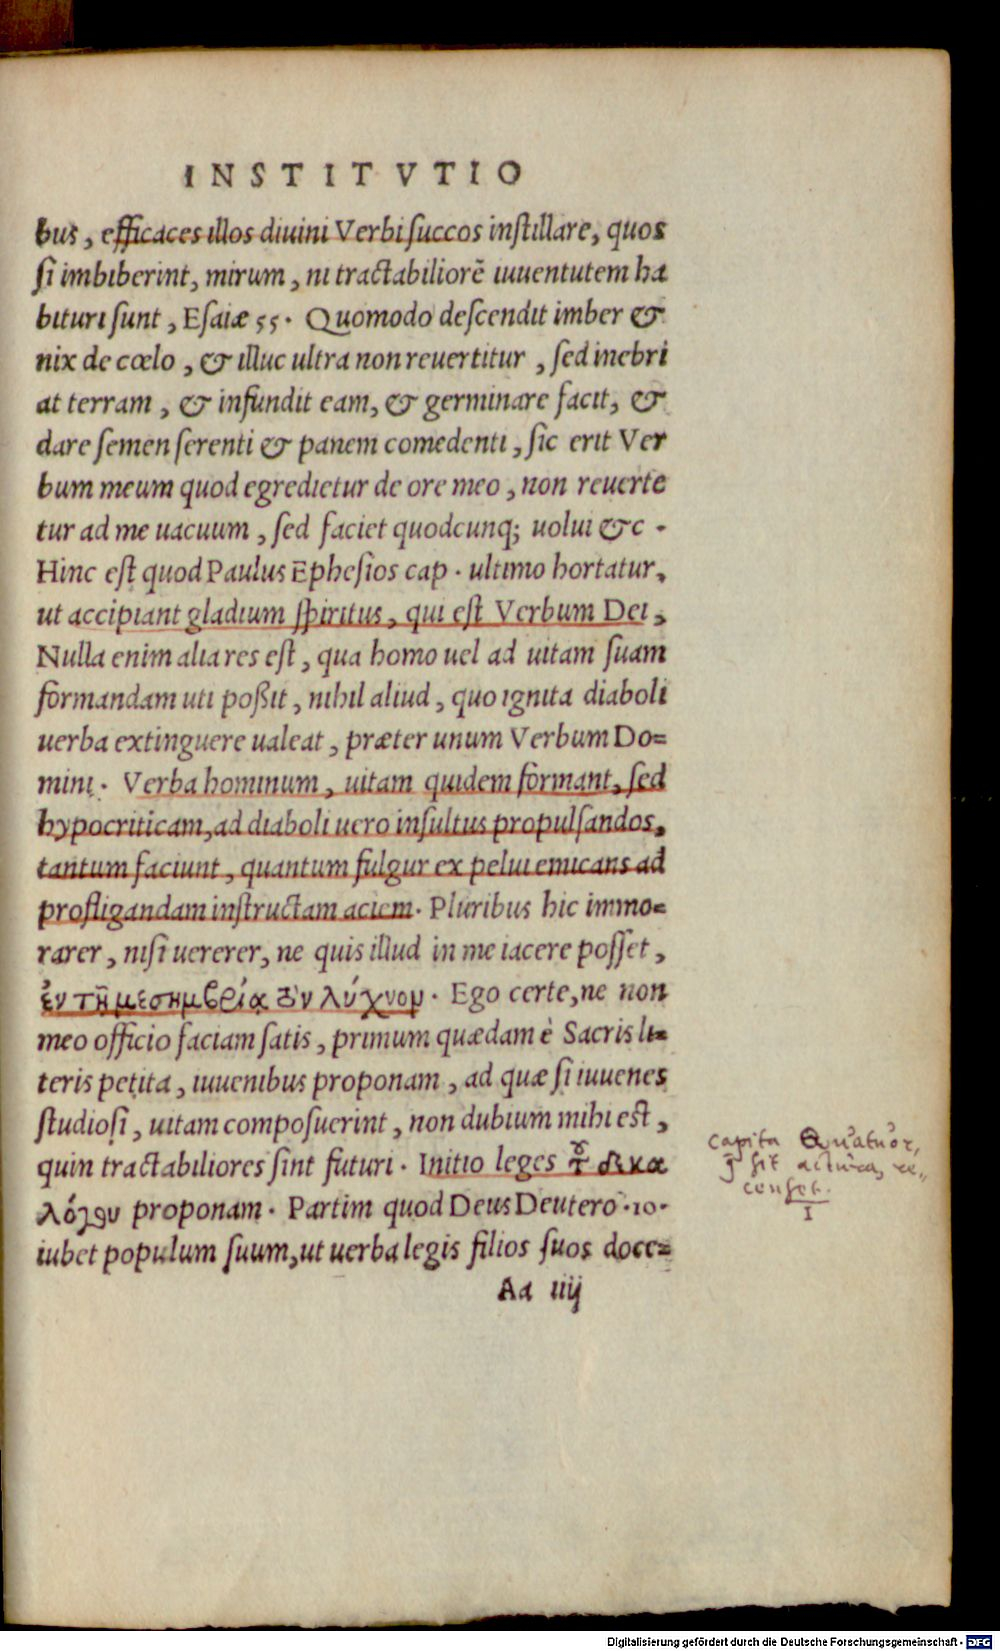 INSTITVTIO
bus, efficaces illos diuini Verbi succos instillare, quos
si imbiberint, mirum, ni tractabiliorē iuuentutem ha
bituri sunt, Esaiæ 55. Quomodo descendit imber &
nix de cœlo, & illuc ultra non reuertitur, sed inebri
at terram, & infundit eam, & germinare facit, &
dare semen serenti & panem comedenti, sic erit Ver
bum meum quod egredietur de ore meo, non reuerte
tur ad me uacuum, sed faciet quodcunq; uolui &c.
Hinc est quod Paulus Ephesios cap. ultimo hortatur,
ut accipiant gladium spiritus, qui est Verbum Dei,
Nulla enim alia res est, qua homo uel ad uitam suam
formandam uti poßit, nihil aliud, quo ignita diaboli
uerba extinguere ualeat, præter unum Verbum Do=
mini. Verba hominum, uitam quidem formant, sed
hypocriticam, ad diaboli uero insultus propulsandos,
tantum faciunt, quantum fulgur ex pelui emicans ad
profligandam instructam aciem. Pluribus hic immo=
rarer, nisi uererer, ne quis illud in me iacere posset,
ἐν τῇ μεσημβρίᾳ τὸν λύχνον. Ego certe, ne non
meo officio faciam satis, primum quædam è Sacris li=
teris petita, iuuenibus proponam, ad quæ si iuuenes
studiosi, uitam composuerint, non dubium mihi est,
quin tractabiliores sint futuri. Initio leges τοῦ δεκα
λόγου proponam. Partim quod Deus Deutero.10.
iubet populum suum, ut uerba legis filios suos doce=
Aa iiij
capita Quatuor,
sit acturus, re,,
censet.
1
Digitalisierung gefördert durch die Deutsche Forschungsgemeinschaft - DFG